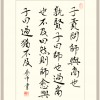 子貢問師與商也
孰賢子曰師也過商
也不及曰然則師愈與
子曰過猶不及